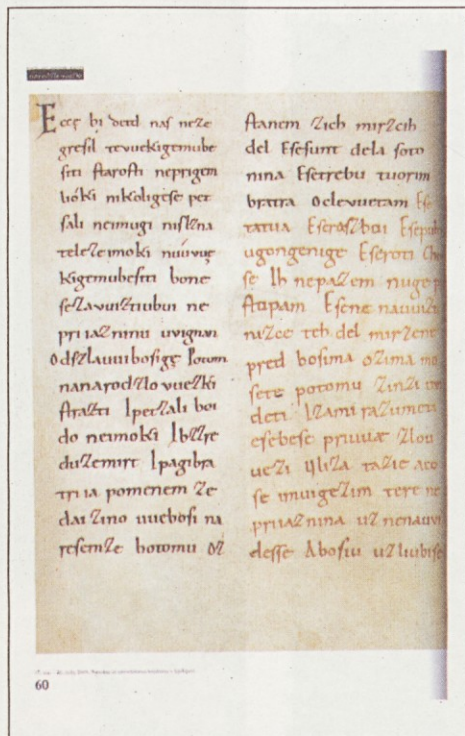 Ecce bi detd naſ neze
greſil tevuekigemube
ſiti ſtaroſti neprigem
lióki nikoligeſe pet
ſali neimugi niſlzna
teleze imoki núuvue
kigemubeſiti bone
ſezavuiztiubui ne
priiazninu uvignan
Odſzlauuiboſigę Potom
nanarodzlovuezki
ſtrazti Ipetzali boi
do neimoki Ibzzre
duzemirt Ipagibra
triia pomenem ze
dai zino uueboſi na
reſemze botomu oz
ſtanem zich mirzcih
del Eſeſunt dela ſoto
nina Eſetrebu tuorim
bratra Oclevuetam Eſe
tatua Eſerazboi
ugongenige Eſeroti
ſe Ih nepazem nuge p
ſtopam Eſene nauuiz
nizce teh del mirzene
pred boſima ozima mo
ſete potomu zinzi uvi
deti Izami razumeti
eſebeſe priuvae zlou
uezi Iliza tazie aco
ſe imuigezim tere ne
priiaznina uznenauvi
deſſe Aboſiu uzliubiſe
60